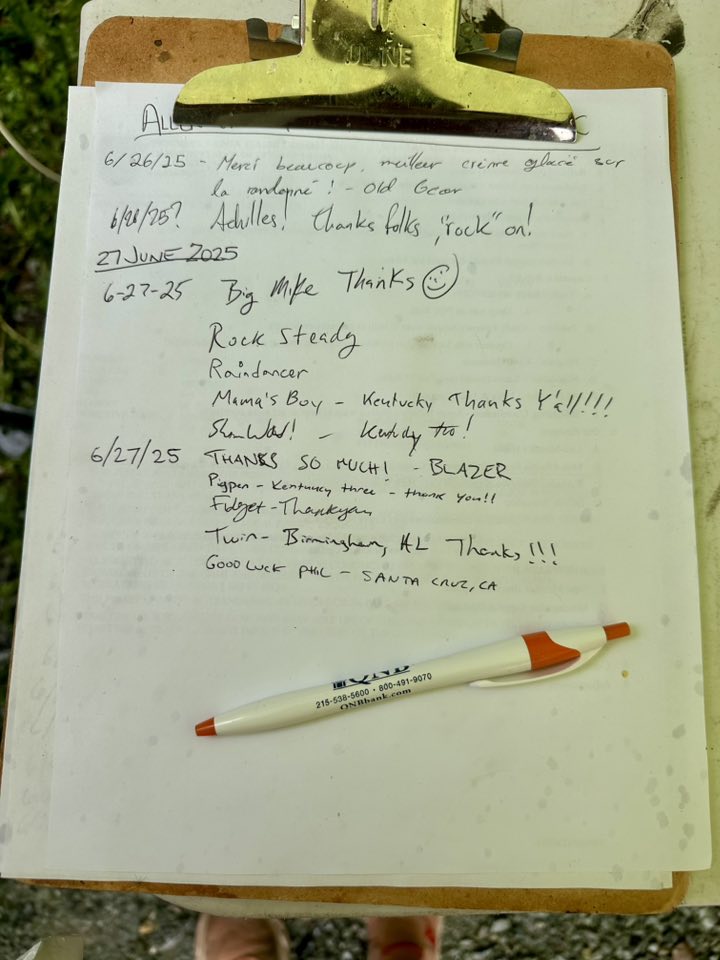 LINE
ALL
C
6/26/25 - Merci beaucoup, meilleur crème glacé sur
la randonné! - Old Gear
6/28/25? Achilles! Thanks folks, "rock" on!
27 JUNE 2025
6-27-25 Big Mike Thanks
Rock Steady
Raindancer
Mama's Boy - Kentucky Thanks Y'all!!!
- Kentucky too!
6/27/25 THANKS SO MUCH! - BLAZER
Pigpen - Kentucky three - thank you!!
Fidget - Thankyou
Twin - Birmingham, AL Thanks!!!
GOOD LUCK PHIL - SANTA CRUZ, CA
QNB
215-538-5600 • 800-491-9070
QNBbank.com